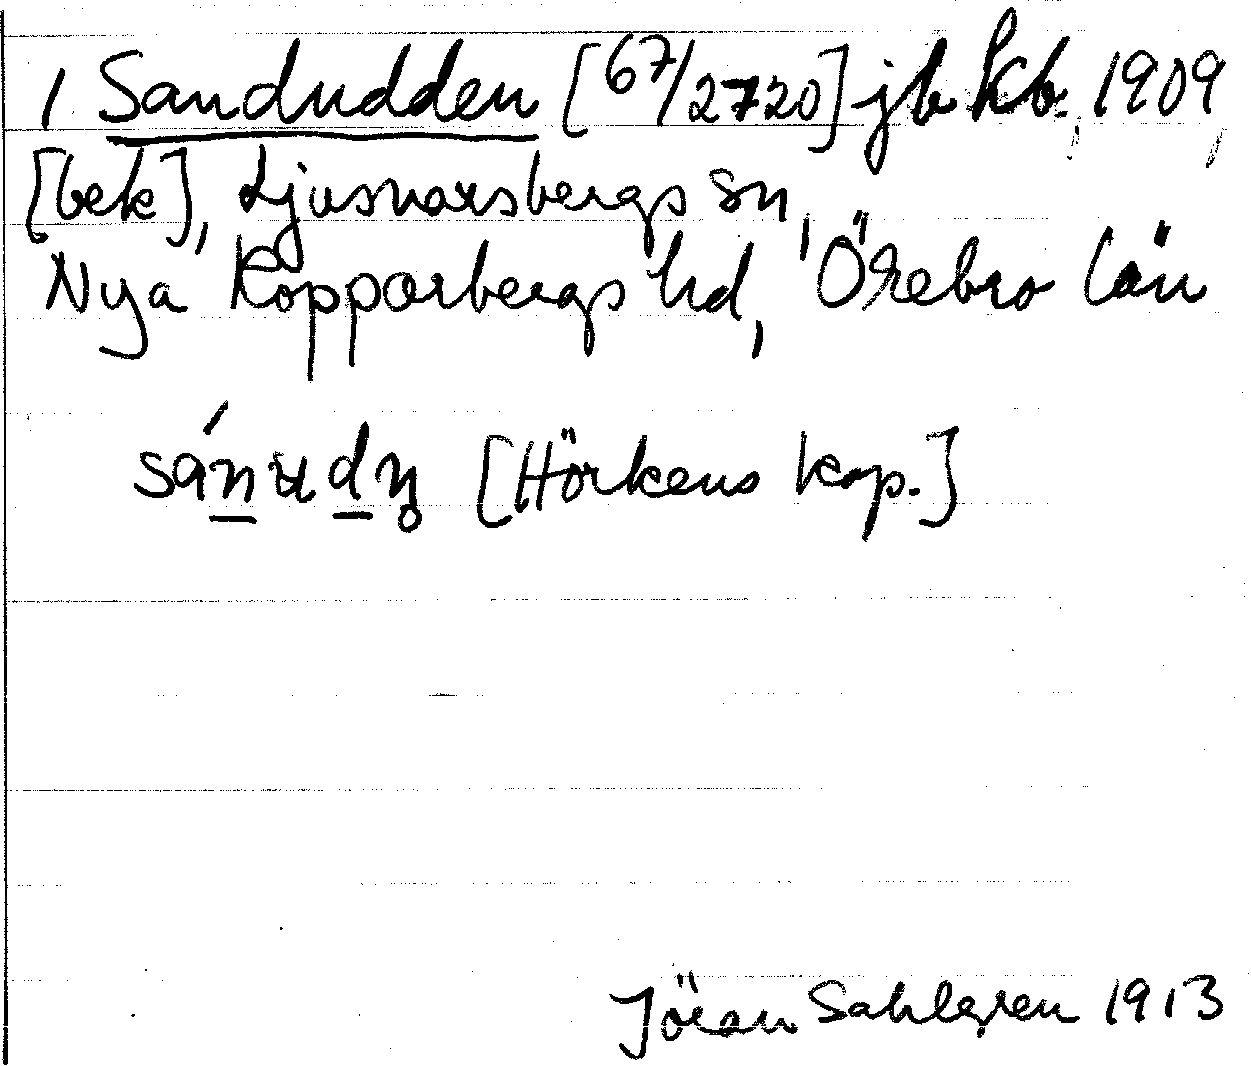 1 Sandudden [67/2720] jb kb. 1909,
[bek], Ljusnarsbergs sn,
Nya Kopparbergs hd, Örebro län
[Hörkens kap.]
Jöran Sahlgren 1913